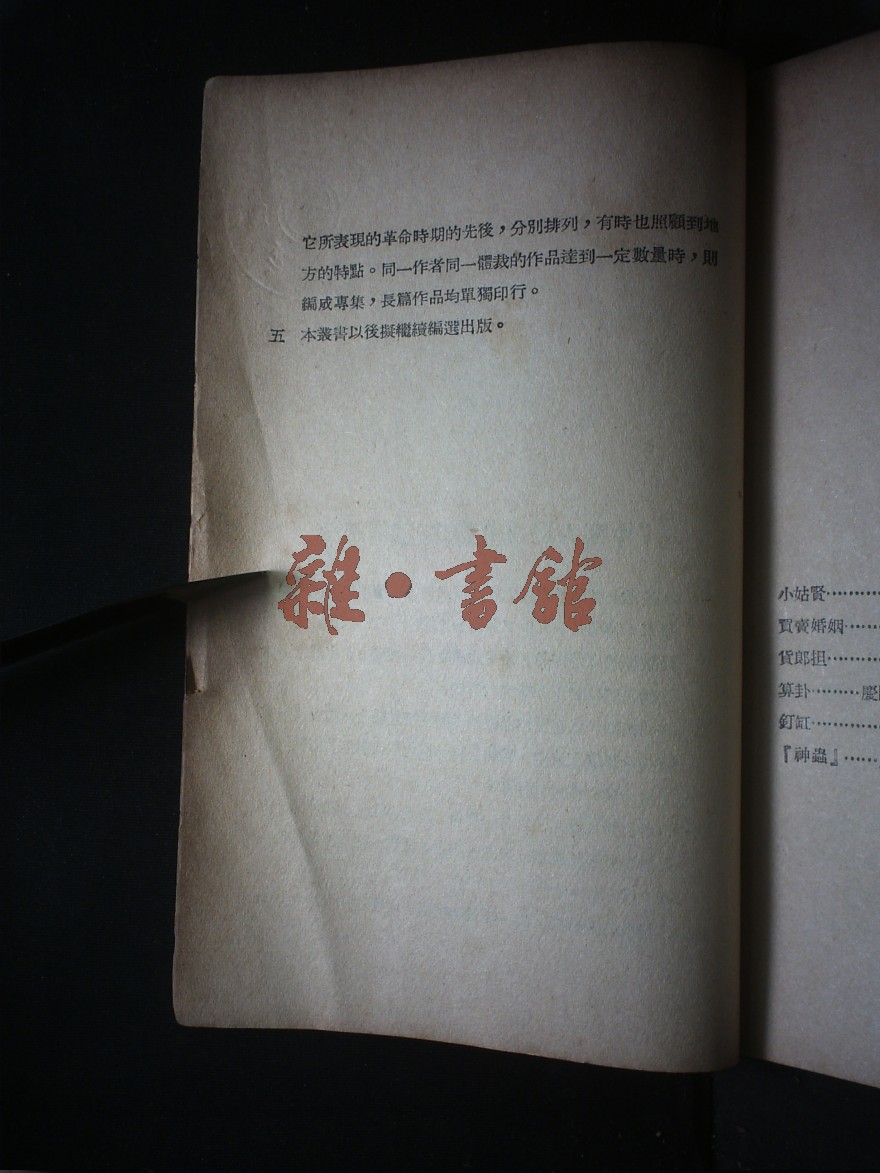 它所表現的革命時期的先後，分別排列，有時也照顧到地
方的特點。同一作者同一體裁的作品達到一定數量時，則
編成專集，長篇作品均單獨印行。
五 本叢書以後擬繼續編選出版。
雜·書館
小姑賢…………
買賣婚姻…………
貨郎担…………
算卦………慶
釘缸…………
『神蟲』……